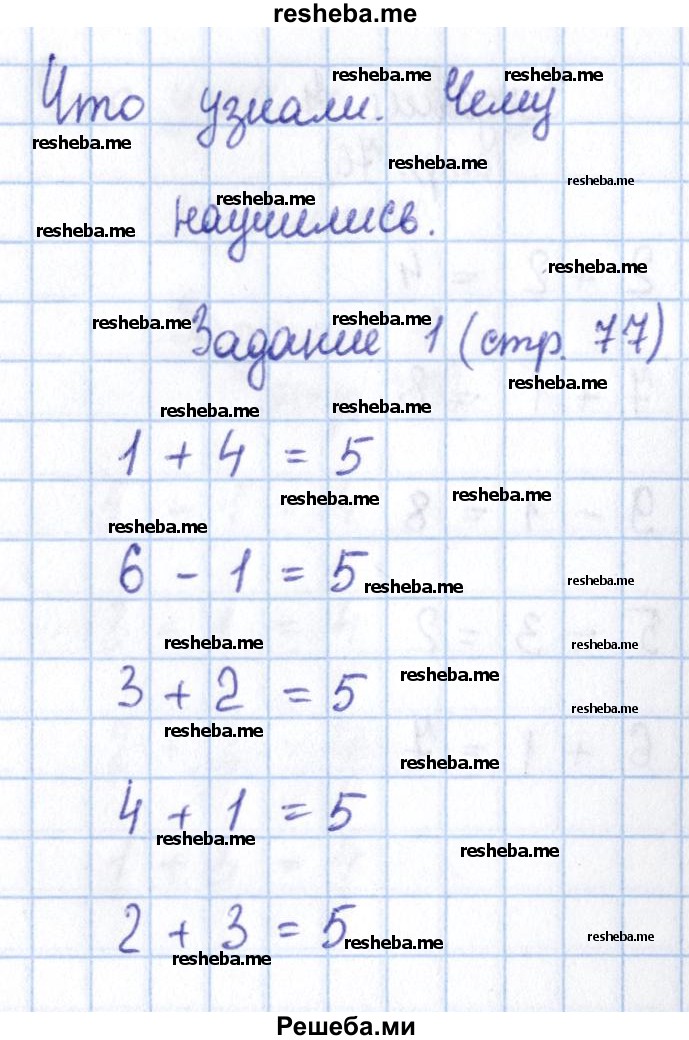 resheba.me
resheba.me resheba.me
Что узнали. Чему
resheba.me
resheba.me
resheba.me
resheba.me
научились.
resheba.me
resheba.me
resheba.me resheba.me
Задание 1 (стр. 77)
resheba.me
resheba.me resheba.me
1 + 4 = 5
resheba.me resheba.me
resheba.me
6 - 1 = 5
resheba.me resheba.me
resheba.me resheba.me
resheba.me
3 + 2 = 5
resheba.me
resheba.me
resheba.me
4 + 1 = 5
resheba.me
resheba.me
2 + 3 = 5
resheba.me resheba.me
resheba.me
Решеба.ми